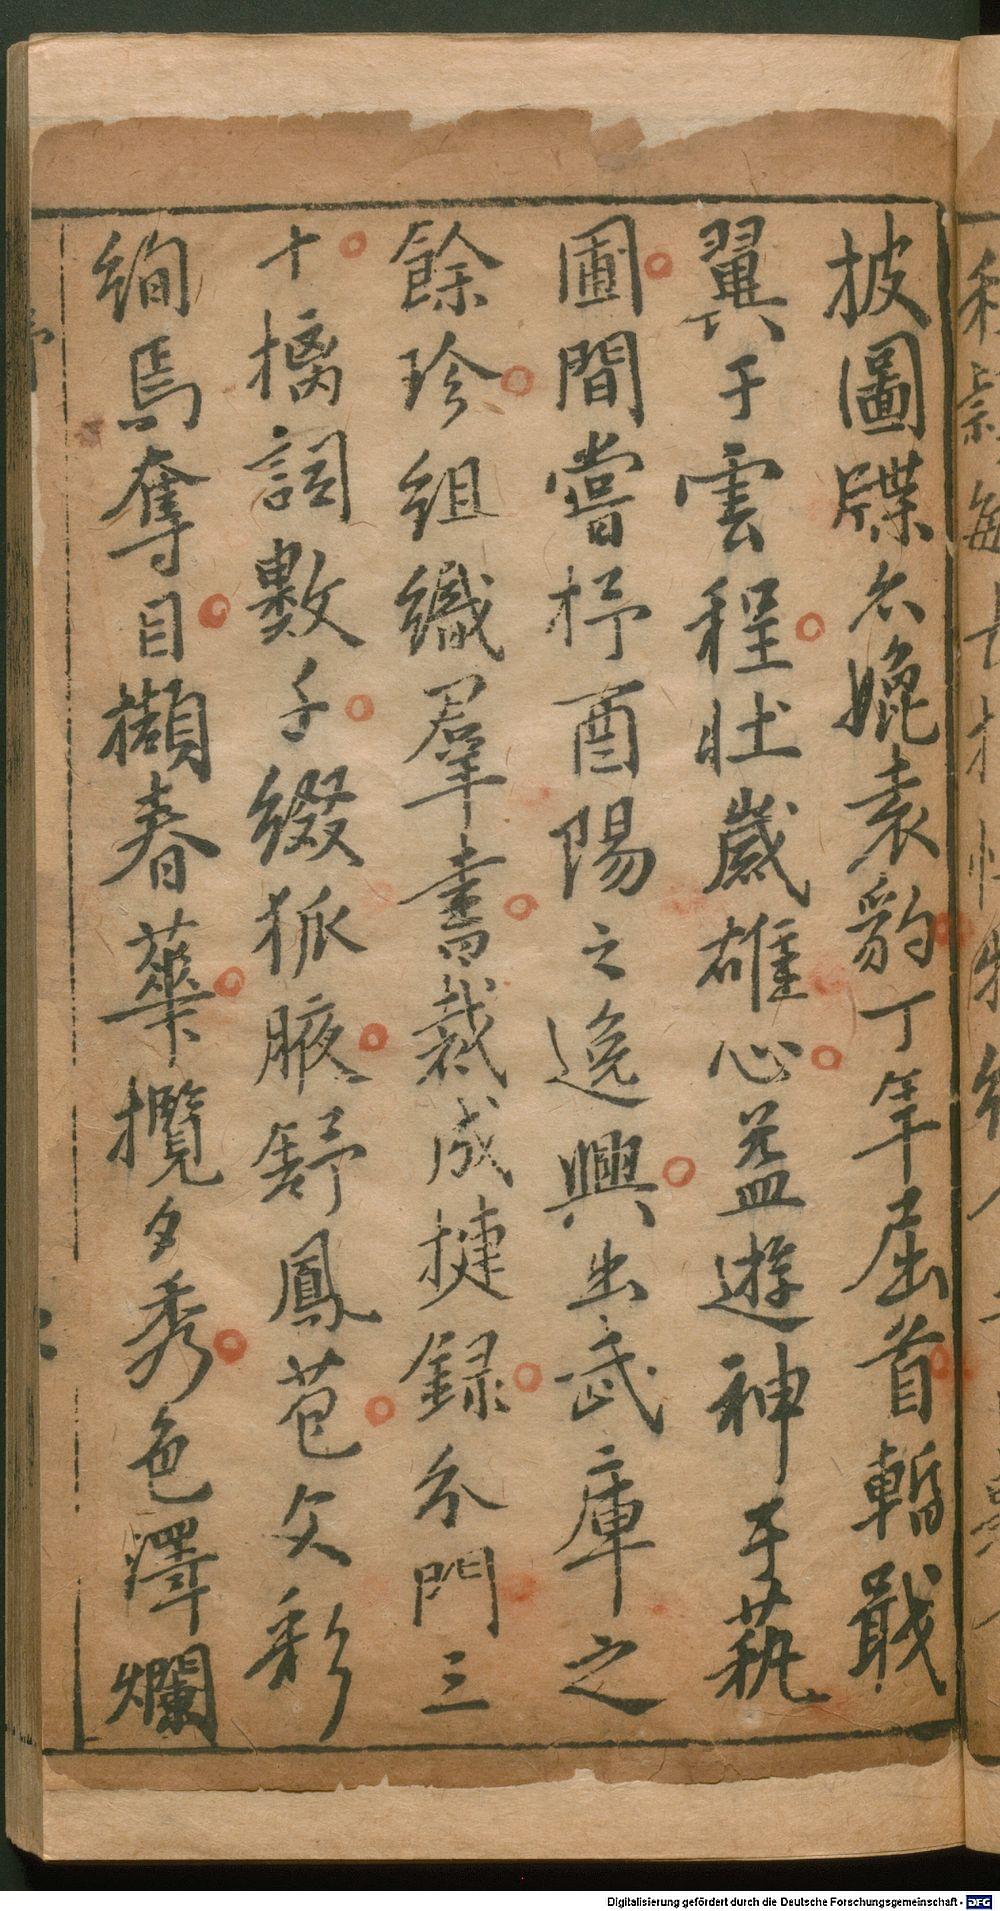 披圖牒不媿袁豹丁年屈首暫戢
翼于雲程壯歲雄心益遊神于蓺
圃間嘗抒酉陽之逸興出武庫之
餘珍組織羣書裁成捷錄分門三
十摛詞數千綴狐腋舒鳳苞文彩
絢焉奪目擷春華攬夕秀色澤爛
Digitalisierung gefördert durch die Deutsche Forschungsgemeinschaft - DFG